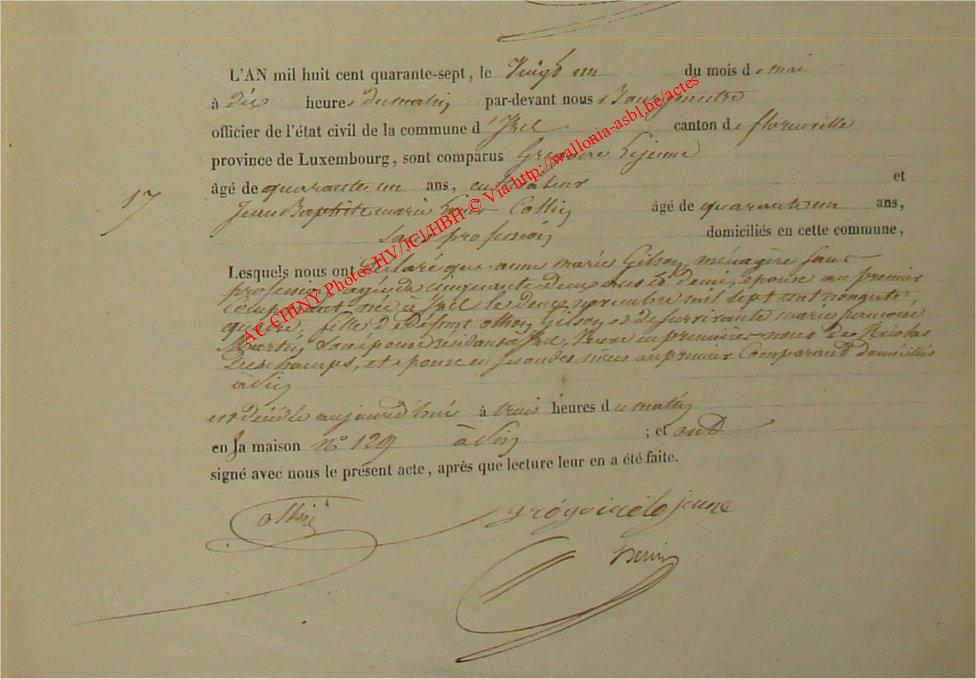 L'AN mil huit cent quarante-sept, le Vingt un du mois de mai
à dix heures du matin par-devant nous Bourgmestre
officier de l'état civil de la commune d'Izel canton de florenville
province de Luxembourg, sont comparus Grégoire Lejeune
âgé de quarante un ans, cultivateur et
17
Jean Baptiste marie ans,
âgé de quarante un
Sans profession domiciliés en cette commune,
Lesquels nous ont Déclaré que anne marie Gilson ménagère sans
profession agée de cinquante deux ans et demi, épouse au premier
comparant née à Izel le deux novembre mil sept cent nonante
quatre, fille de Défunt Gilson et de survivante marie françoise
Martin son épouse veuve en premières noces de Nicolas
Deschamps, et épouse en secondes noces au premier Comparant domiciliés
à
est décédé aujourd'hui à trois heures du matin
en sa maison n° 129 à ; et ont
signé avec nous le présent acte, après que lecture leur en a été faite.
grégoire le jeune
AC CHINY Photos HV/JCI/HBH © Via http://wallonia-asbl.be/actes